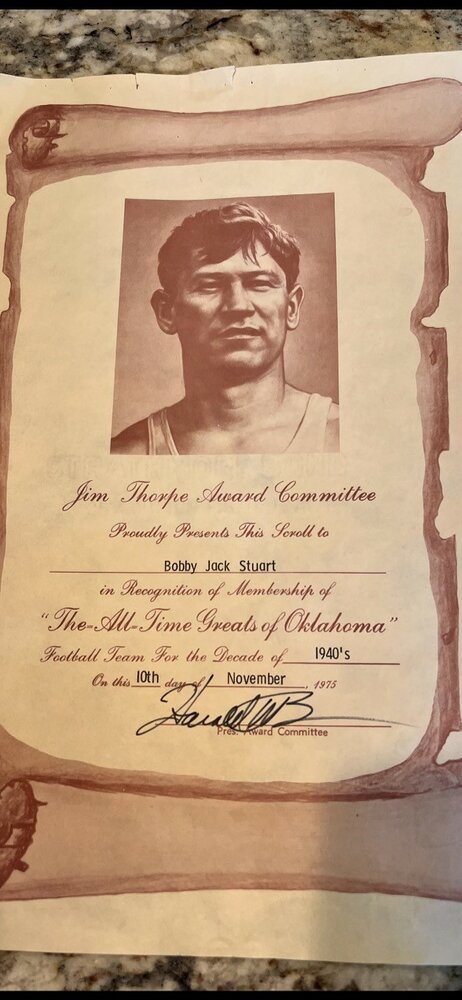 Jim Thorpe Award Committee
Proudly Presents This Scroll to
Bobby Jack Stuart
in Recognition of Membership of
"The-All-Time Greats of Oklahoma"
Football Team For the Decade of 1940's
On this 10th day of November, 1975
Pres. Award Committee